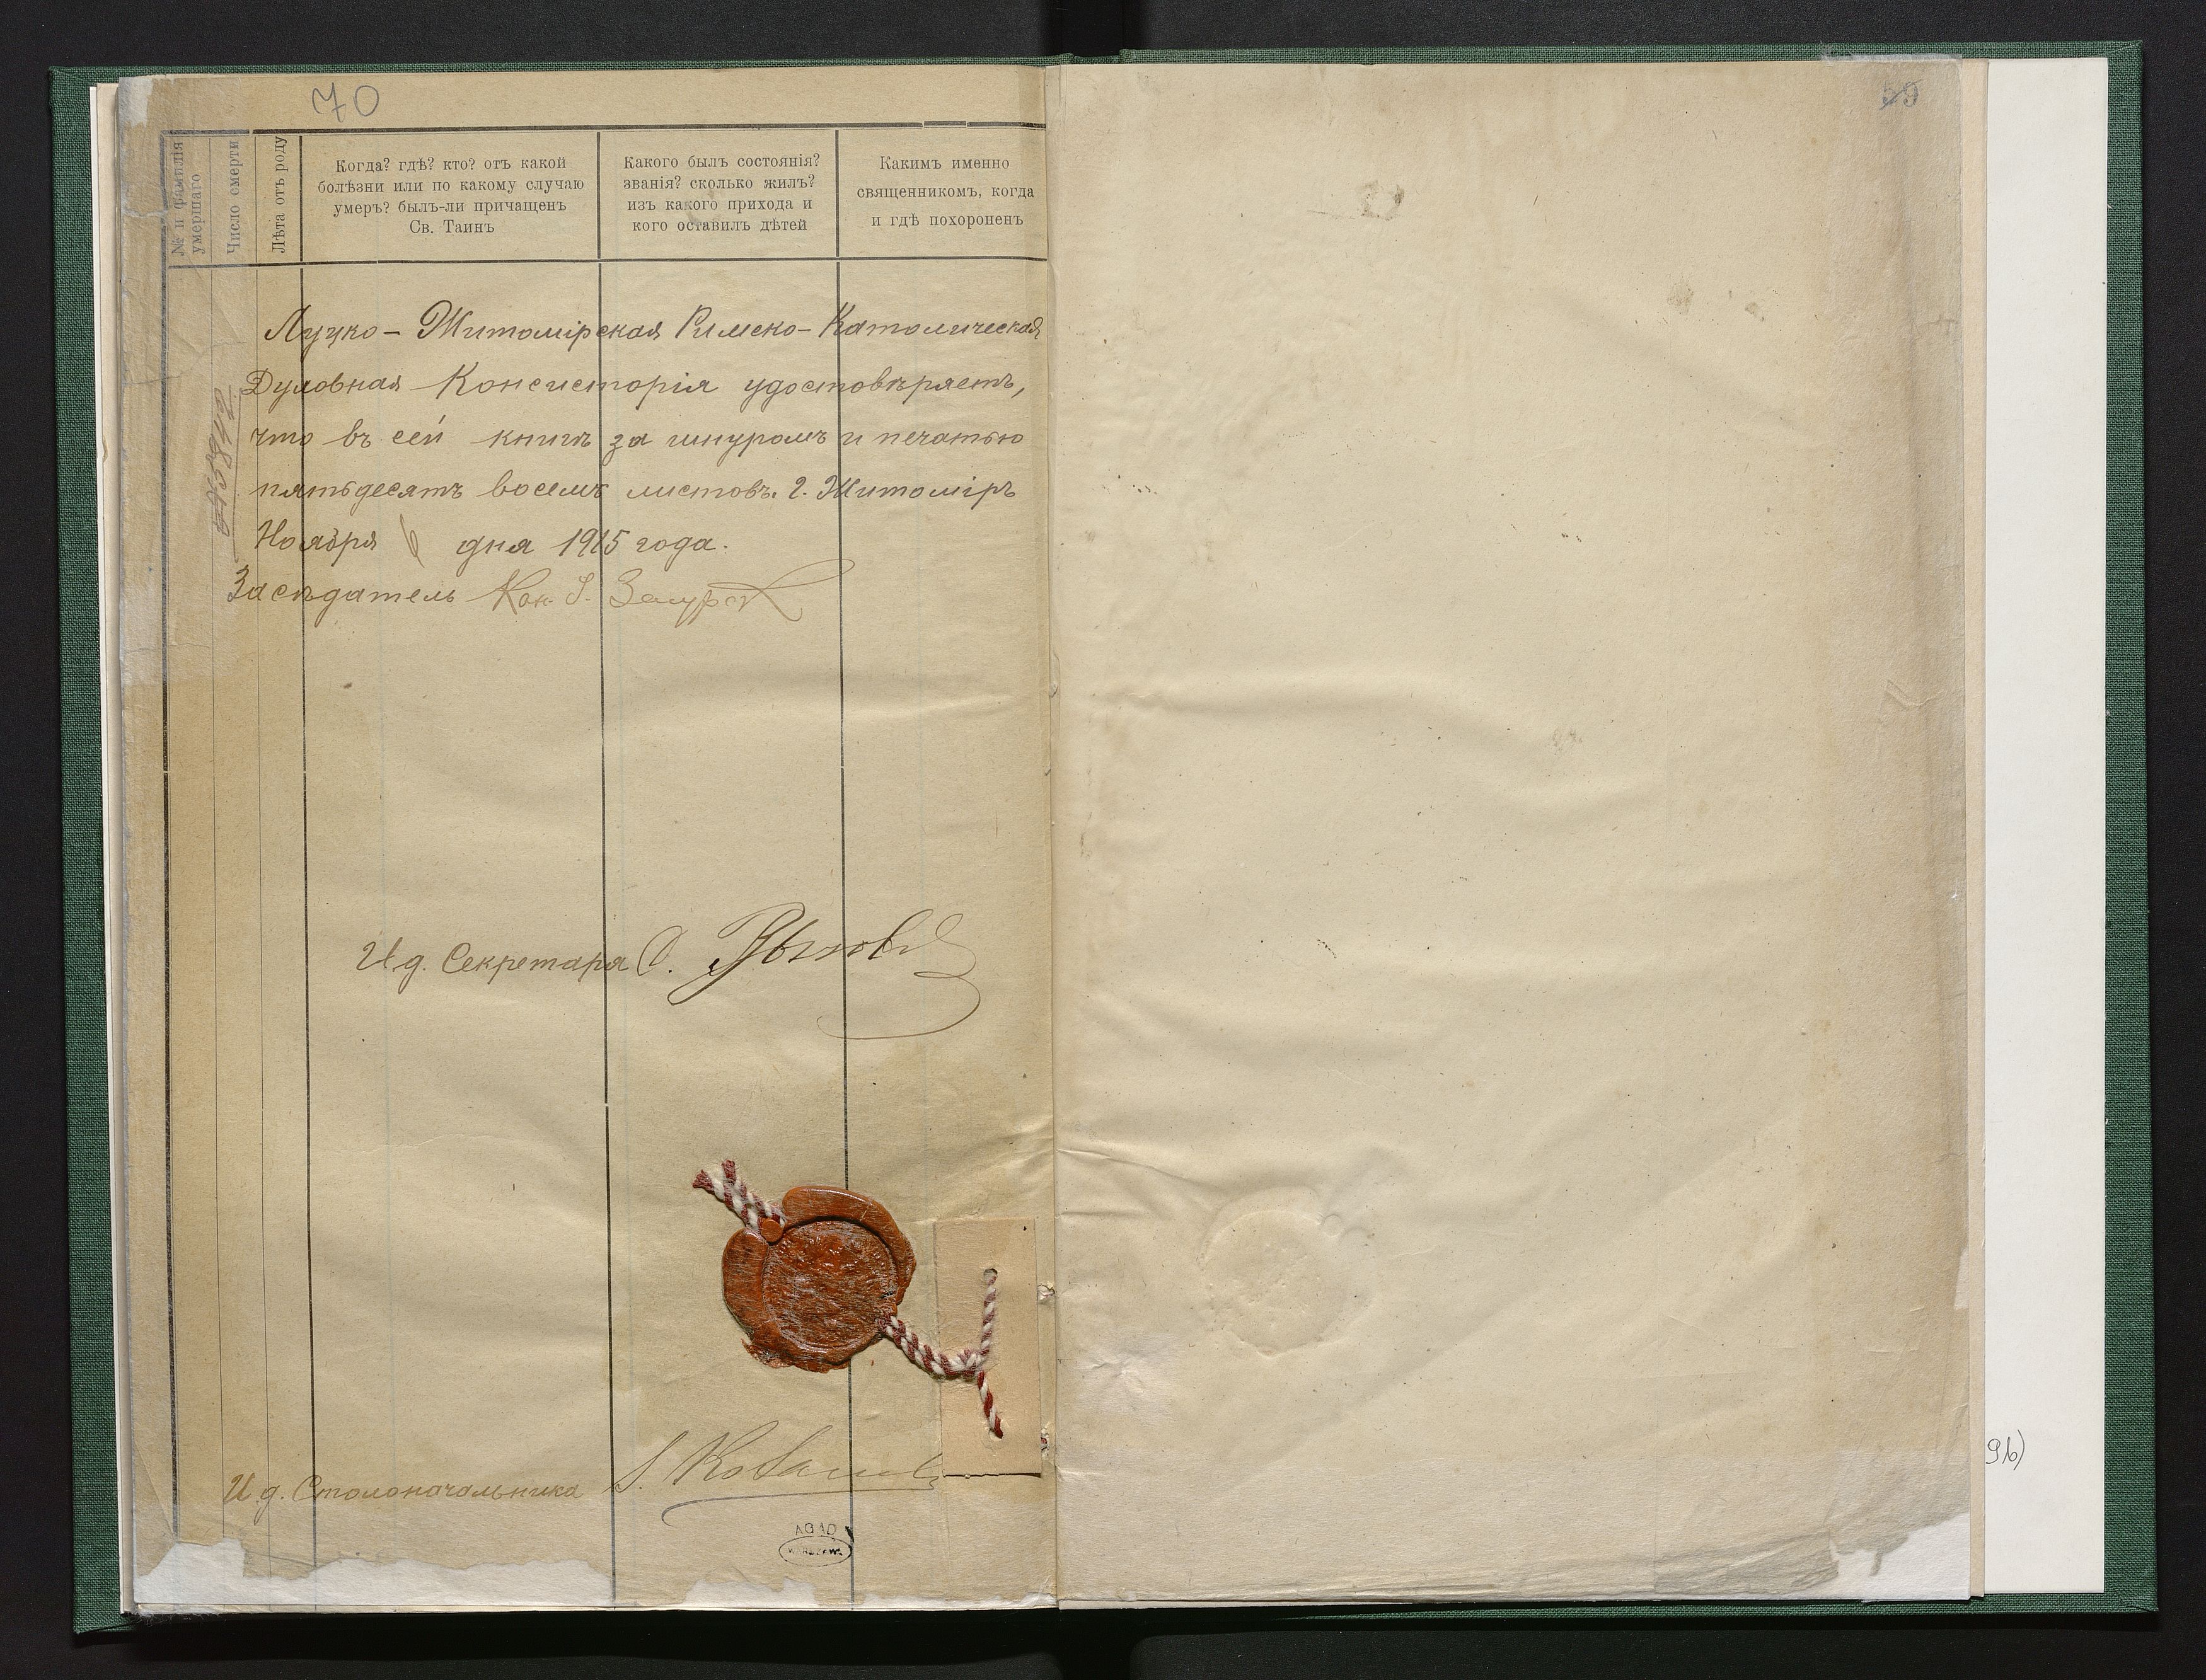 70
№ и фамилія
умершаго
Число смерти
Лѣта отъ роду
Когда? гдѣ? кто? отъ какой
болѣзни или по какому случаю
умеръ? былъ-ли причащенъ
Св. Таинъ
Какого былъ состоянія?
званія? сколько жилъ?
изъ какого прихода и
кого оставилъ дѣтей
Какимъ именно
священникомъ, когда
и гдѣ похороненъ
Луцко-Житомірская Римско-Католическая
Духовная Консисторія удостовѣряетъ,
что въ сей книгѣ за шнуромъ и печатью
пятьдесятъ восемь листовъ. г. Житоміръ
Ноября 6 дня 1915 года.
Засѣдатель Кан.
И.д. Секретаря
И.д. Столоначальника
AGAD
59
96)